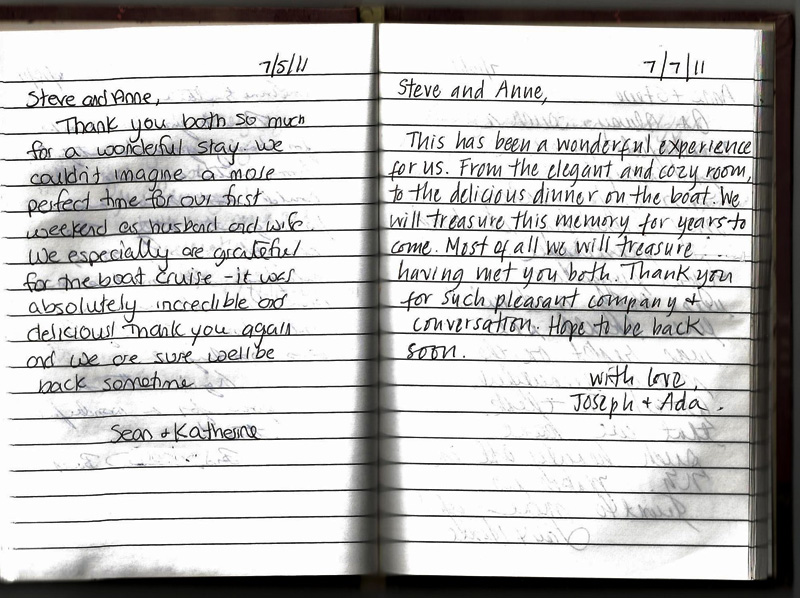 7/5/11
Steve and Anne,
Thank you both so much
for a wonderful stay. We
couldn't imagine a more
perfect time for our first
weekend as husband and wife.
We especially are grateful
for the boat cruise - it was
absolutely incredible and
delicious! Thank you again
and we are sure we'll be
back sometime
Sean + Katherine
7/7/11
Steve and Anne,
This has been a wonderful experience
for us. From the elegant and cozy room,
to the delicious dinner on the boat. We
will treasure this memory for years to
come. Most of all we will treasure ...
having met you both. Thank you
for such pleasant company +
conversation. Hope to be back
soon.
with love,
Joseph + Ada.